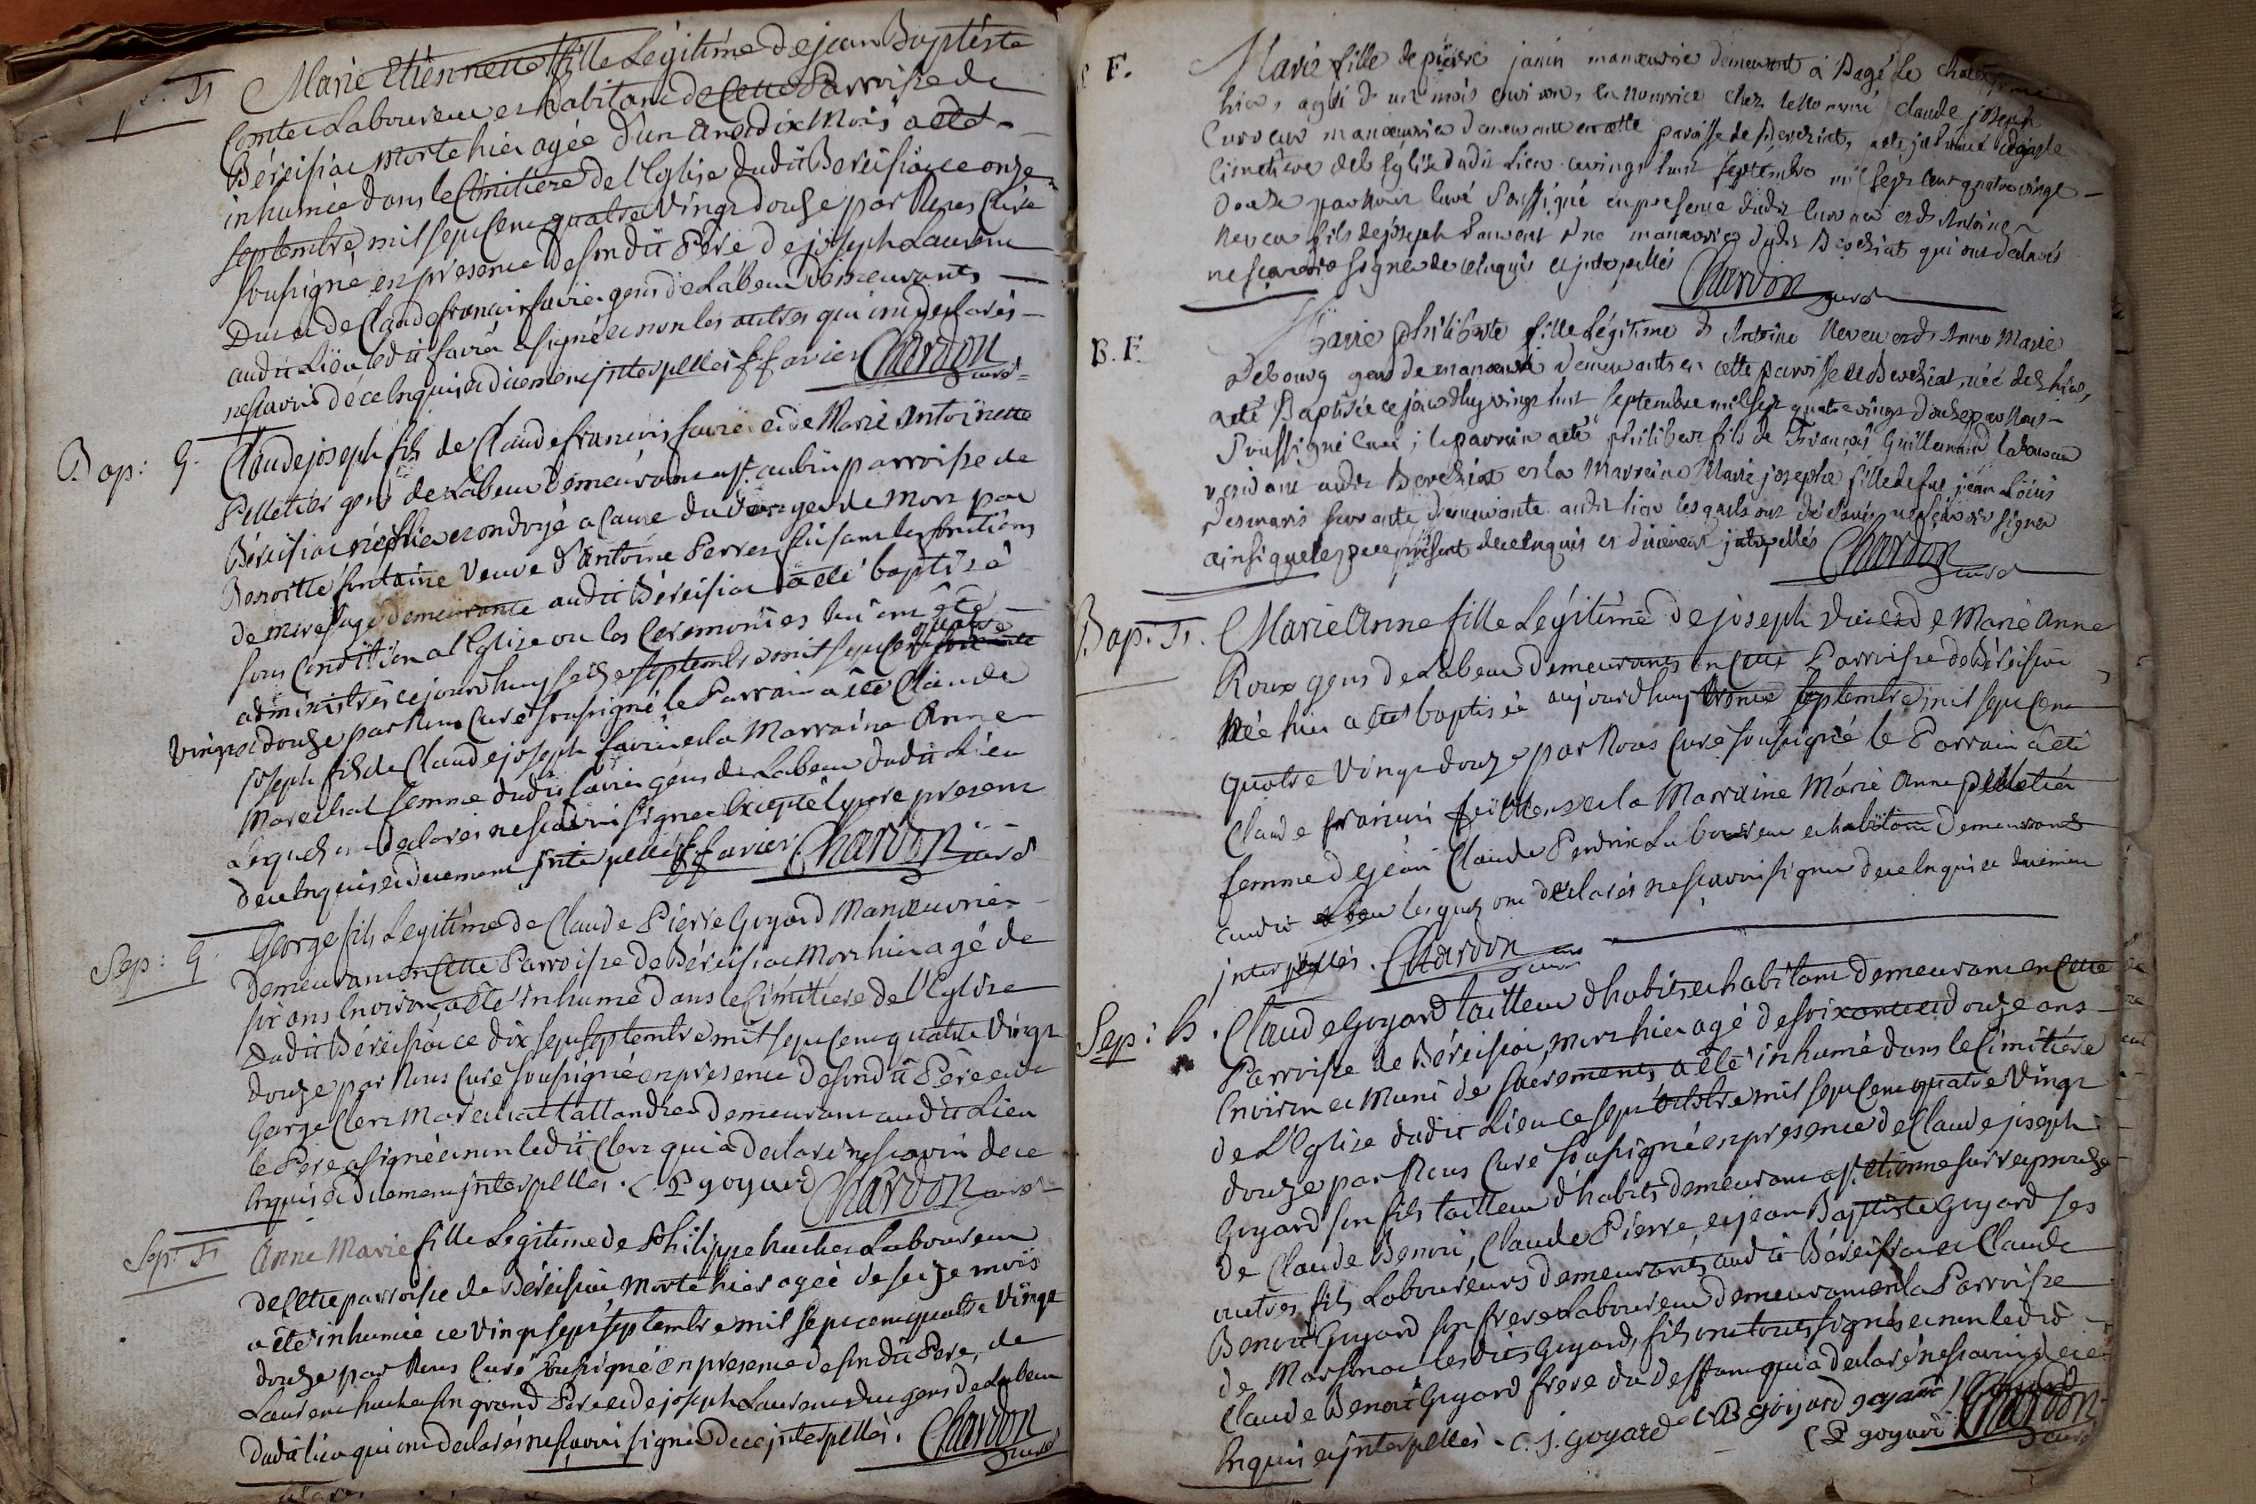 S. F.
Marie Etiennette fille Légitime de jean Baptéste
Comte Laboureur et habitant de Cette Parroisse de
Béreisiac morte hier agée d'un an et dix Mois a été
inhumée dans le Cimitiere de l'Eglise dudit Bereisiac ce onze
septembre mil sept cent quatre vingt douze par Nous Curé
soussigné en presence de son dit Pere de joseph Laurent
Duc et de Claude francois favier gens de Labeur demeurants
audit Lieu ledit favier a signé et non les autres qui ont declarés
nescavoir de ce Enquis et duement jnterpellés f favier Chardon
curé
Bap: G.
Claude joseph fils de Claude francois favier et de Marie Antoinette
Pelletier gens de Labeur demeurant a st. aubin parroisse de
Béreisiac né hier et ondoyé a Cause du danger de Mort par
Benoitte fontaine Veuve d'Antoine Perret faisant les fonctions
de mere sage demeurante audit Béreisiac a été baptisé
sous Condition a l'Eglise ou les Ceremonies lui ont été
administrés ce jourd'huy seize septembre mil sept cent quatre
vingt douze par Nous Curé soussigné le Parrain a été Claude
joseph fils de Claude joseph favier et la Marraine Anne
Marechal femme dudit favier gens de Labeur dudit Lieu
Lesquels ont declarés nescavoir signer Excepté le pere present
de ce Enquis et duement jnterpellés f favier Chardon
curé
Sep: G.
George fils Legitime de Claude Pierre Goyard Manœuvrier
demeurant en Cette Parroisse de Béreisiac Mort hier agé de
six ans Environ a été inhumé dans le Cimitiere de l'Eglise
dudit Béreisiac ce dix sept septembre mil sept cent quatre vingt
douze par Nous Curé soussigné en presence de son dit Pere et de
George Clerc Marechal tallandier demeurant audit Lieu
le Pere a signé et non ledit Clerc qui a declaré nescavoir de ce
Enquis et duement jnterpellés. C P goyard Chardon curé
Sep: F.
Anne Marie fille Legitime de Philippe huchet Laboureur
de Cette parroisse de Béreisiac Morte hier agée de seize mois
a été inhumée ce vingt sept septembre mil sept cent quatre vingt
douze par Nous Curé soussigné en presence de son dit Pere, de
Laurent huchet son grand Pere et de joseph Laurent duc gens de Labeur
dudit lieu qui ont declarés nescavoir signer de ce jnterpellés. Chardon
curé
S. F.
Marie fille de pierre janin manœuvre demeurant à Bagé Le chatel
hier, agée d'un mois environ, en nourrice chez le nommé claude joseph
manœuvrier demeurant en cette paroisse de Bereziat, a été inhumée
cimetiere de l'Eglise dudit Lieu ce vingt huit septembre mil sept cent quatre vingt
douze par nous curé soussigné en presence dudit et d'Antoine
Neveu fils de joseph manœuvrier dudit Bereziat qui ont declarés
ne sçavoir signer de ce enquis et jnterpellés Chardon
curé
B. F.
Marie philiberte fille Légitime d'Antoine Neveu et d'Anne Marie
Debourg gens de manœuvre demeurants en cette paroisse de Bereziat, née d'hier,
a été Baptisée ce jourdhuy vingt huit septembre mil sept quatre vingt douze par Nous
soussigné Curé; le parrain a été philibert fils de François Guillemaud laboureur
résidant audit Bereziat et la Marraine Marie josephe fille de feu jean Loüis
Desmaris servante demeurante audit lieu lesquels ont déclarés ne sçavoir signer
ainsi que le pere présent de ce enquis et duement jnterpellés Chardon
curé
Bap. F.
Marie Anne fille Legitime de joseph Duc et de Marie Anne
Roux gens de Labeur demeurants en Cette Parroisse de Béreisiac
Née hier a été baptisée aujourdhuy trente septembre mil sept cent
quatre vingt douze par Nous Curé soussigné le Parrain a été
Claude francois feuillens et la Marraine Marie Anne pelletier
femme de jean Claude Perdrix Laboureur et habitant demeurants
audit Lieu lesquels ont declarés nescavoir signer de ce Enquis et duement
jnterpellés. Chardon curé
Sep: G.
Claude Goyard tailleur d'habits et habitant demeurant en Cette
Parroisse de Béreisiac, mort hier agé de soixante et douze ans
Environ et Muni de sacrements a été inhumé dans le Cimitiere
de L'Eglise dudit Lieu ce sept octobre mil sept cent quatre vingt
douze par Nous Curé soussigné en presence de Claude joseph
Goyard son fils tailleur d'habits demeurant a st. etienne sur reyssouze
de Claude Benoit, Claude Pierre, et jean Baptiste Goyard ses
autres fils Laboureurs demeurants audit Béreisiac et Claude
Benoit Goyard son frere Laboureur demeurant en la Parroisse
de Marsonnas lesdits Goyard, fils ont tous signés et non ledit
Claude Benoit Goyard frere du deffunt qui a declaré nescavoir de ce
Enquis et jnterpellés. C. j. goyard C B goyard goyard
C P goyard Chardon
curé